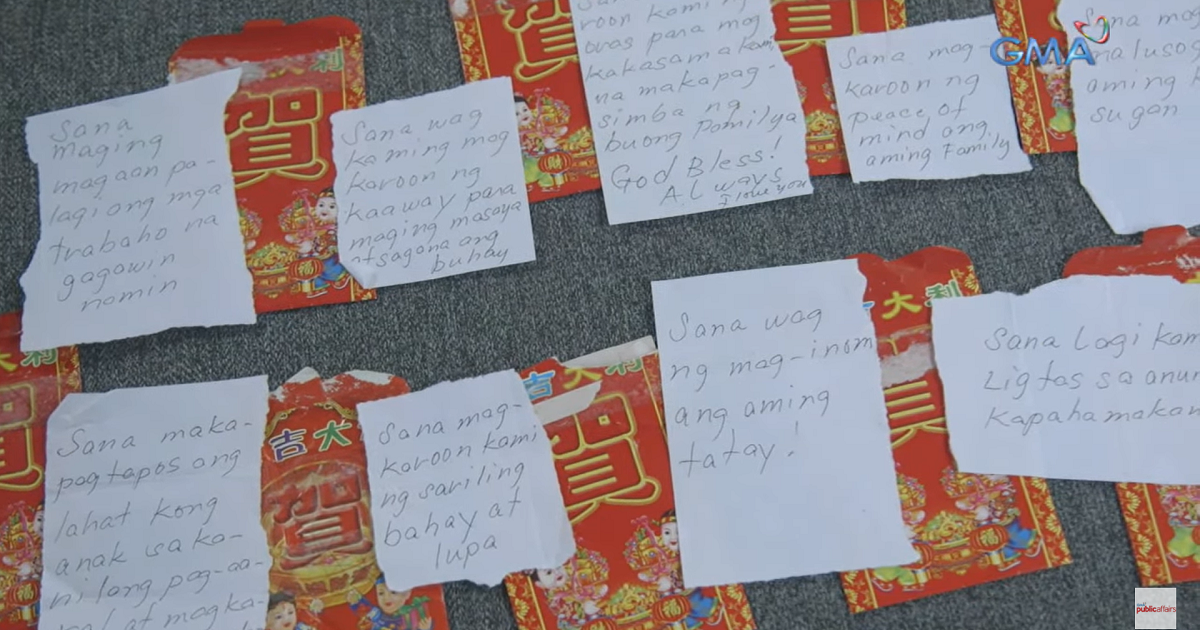 Sana
maging
magaan pa-
lagi ang mga
trabaho na
gagawin
namin
Sana wag
kaming mag
karoon ng
kaaway para
maging masaya
at sagana ang
buhay
roon kami ng
oras para mag
kakasama kami
na makapag-
simba ng
buong Pamilya
God Bless!
ALways
I love you
Sana mag-
karoon ng
peace of
mind ang
aming Family
GMA
Sana mag
malusog
aming
sugan
Sana maka-
pagtapos ang
lahat kong
anak sa ka-
nilang pag-aa-
ral at magka-
Sana mag-
karoon kami
ng sariling
bahay at
lupa
Sana wag
ng mag-inom
ang aming
tatay!
Sana Lagi kam
Ligtas sa anu
Kapahamakan
大利
賀
吉大
賀
吉大利
賀
大利
publicaffairs